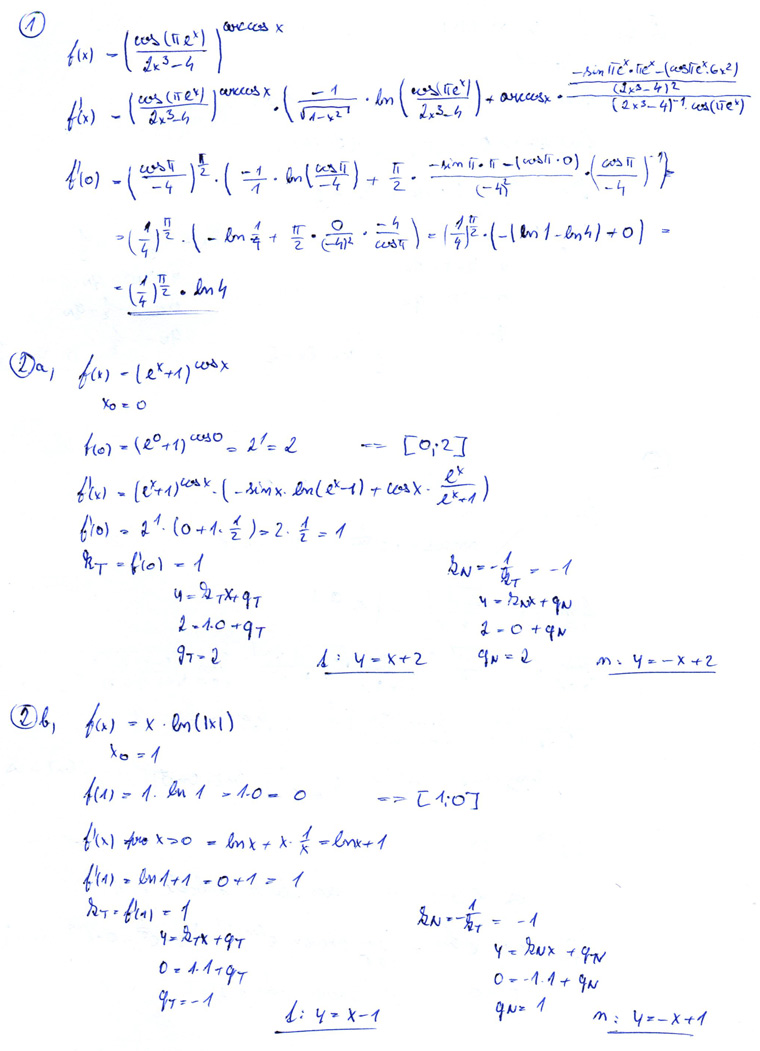 ①
f(x) = (cos(πe^x)/(2x³-4))^arccos x
f'(x) = (cos(πe^x)/(2x³-4))^arccos x · (-1/√(1-x²) · ln(cos(πe^x)/(2x³-4)) + arccos x · ((-sin πe^x · πe^x - (cos πe^x · 6x²))/(2x³-4)²)/((2x³-4)^-1 · cos(πe^x))
f'(0) = (cos π/-4)^(π/2) · (-1/1 · ln(cos π/-4) + π/2 · (-sin π · π - (cos π · 0))/(-4)² · (cos π/-4)^-1) =
= (1/4)^(π/2) · (-ln 1/4 + π/2 · 0/(-4)² · -4/cos π) = (1/4)^(π/2) · (-(ln 1 - ln 4) + 0) =
= (1/4)^(π/2) · ln 4
② a, f(x) = (e^x+1)^cos x
x₀ = 0
f(0) = (e^0+1)^cos 0 = 2^1 = 2 => [0;2]
f'(x) = (e^x+1)^cos x · (-sin x · ln(e^x-1) + cos x · e^x/(e^x+1))
f'(0) = 2^1 · (0+1·1/2) = 2·1/2 = 1
k_T = f'(0) = 1 k_N = -1/k_T = -1
y = k_T x + q_T y = k_N x + q_N
2 = 1·0 + q_T 2 = 0 + q_N
q_T = 2 t: y = x+2 q_N = 2 n: y = -x+2
② b, f(x) = x · ln(|x|)
x₀ = 1
f(1) = 1 · ln 1 = 1·0 = 0 => [1;0]
f'(x) pro x>0 = ln x + x · 1/x = ln x + 1
f'(1) = ln 1 + 1 = 0+1 = 1
k_T = f'(1) = 1 k_N = -1/k_T = -1
y = k_T x + q_T y = k_N x + q_N
0 = 1·1 + q_T 0 = -1·1 + q_N
q_T = -1 t: y = x-1 q_N = 1 n: y = -x+1